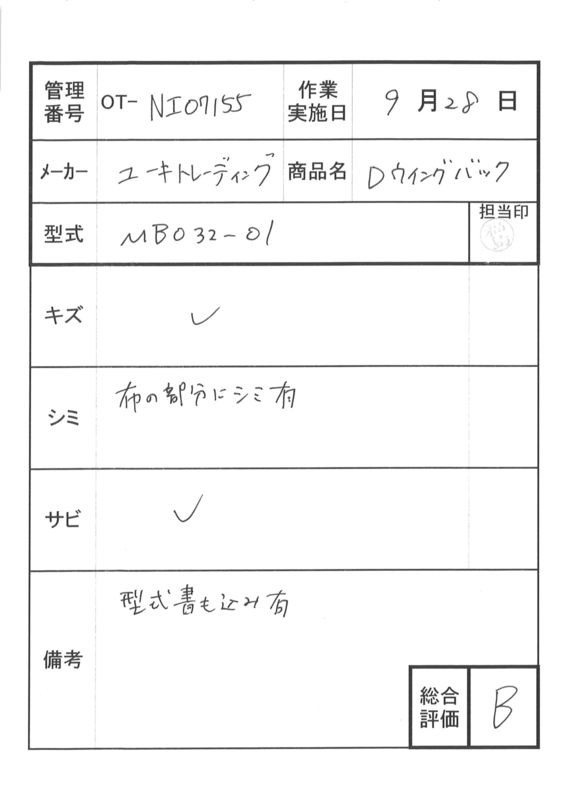 管理番号 OT- NI07155 作業実施日 9月28日
メーカー ユーキトレーディング 商品名 Dウイングバック
型式 MB032-01 担当印
キズ ✓
シミ 布の部分にシミ有
サビ ✓
備考 型式書き込み有
総合評価 B